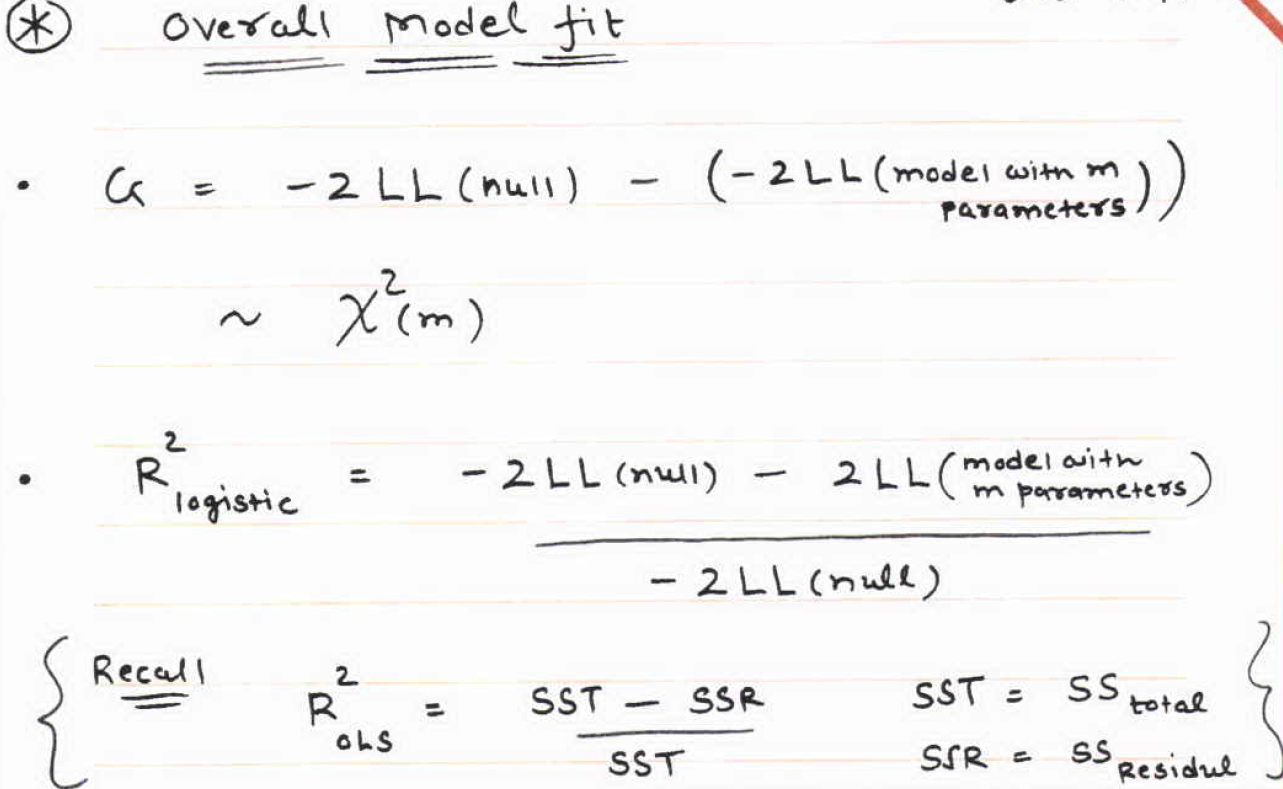 * Overall model fit
• G = -2 LL (null) - (-2 LL (model with m parameters))
~ χ²(m)
• R²logistic = -2 LL (null) - 2 LL (model with m parameters)
-2 LL (null)
{ Recall R²OLS = SST - SSR / SST SST = SS total
SSR = SS Residul }